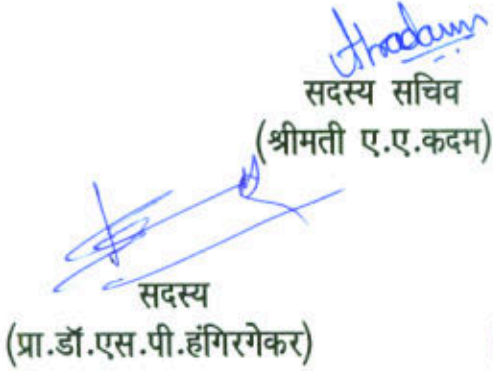 सदस्य सचिव
(श्रीमती ए.ए.कदम)
सदस्य
(प्रा.डॉ.एस.पी.हंगिरगेकर)